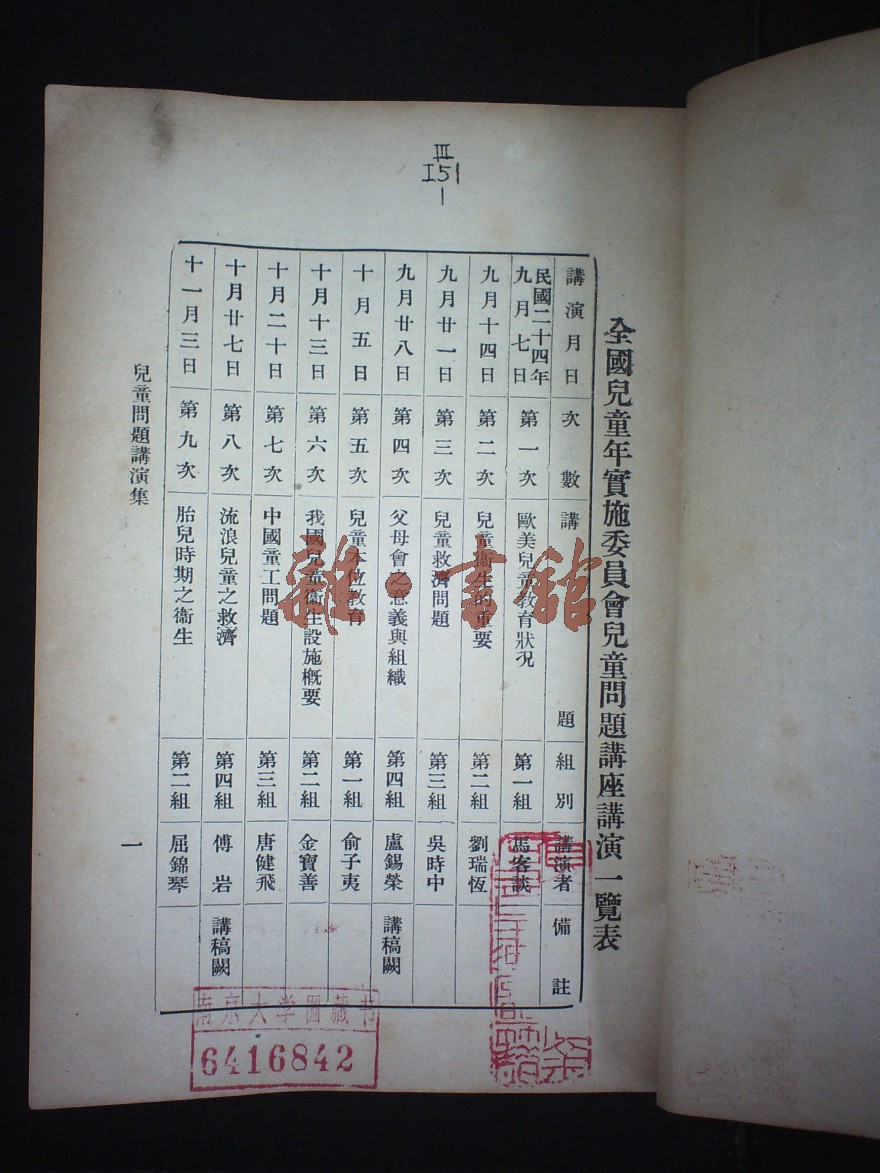 III
I51
1
全國兒童年實施委員會兒童問題講座講演一覽表
講演月日 次數 講題 組別 講演者 備註
民國二十四年九月七日 第一次 歐美兒童教育狀況 第一組 馬客談
九月十四日 第二次 兒童衞生的重要 第二組 劉瑞恆
九月廿一日 第三次 兒童救濟問題 第三組 吳時中
九月廿八日 第四次 父母會之意義與組織 第四組 盧錫榮 講稿闕
十月五日 第五次 兒童本位教育 第一組 俞子夷
十月十三日 第六次 我國兒童衞生設施槪要 第二組 金寶善
十月二十日 第七次 中國童工問題 第三組 唐健飛
十月廿七日 第八次 流浪兒童之救濟 第四組 傅岩 講稿闕
十一月三日 第九次 胎兒時期之衞生 第二組 屈錦琴
兒童問題講演集
一
雜·書館
南京大学圖藏书
6416842